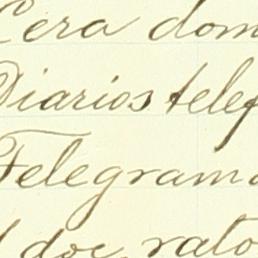 Cera dom
Diarios telef
Telegrama
doc rato